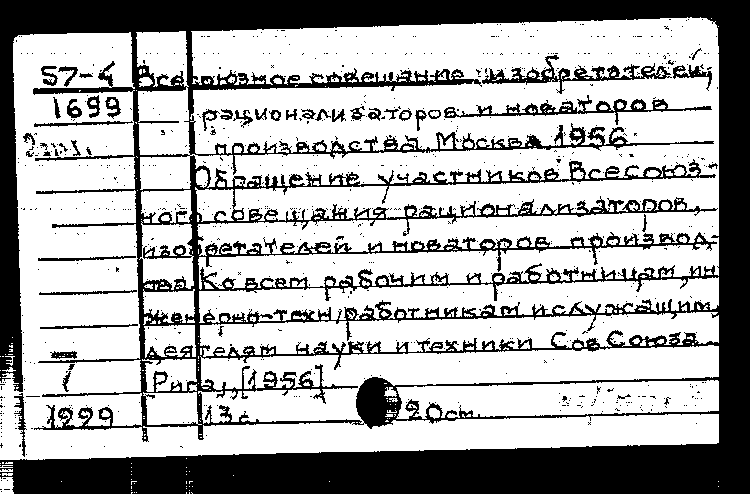 57-4 Всесоюзное совещание изобретателей,
1699 рационализаторов и новаторов
2 экз. производства. Москва 1956
Обращение участников Всесоюз-
ного совещания рационализаторов,
изобретателей и новаторов производ-
ства Ко всем рабочим и работницам, ин
женерно-техн. работникам и служащим,
деятелям науки и техники Сов Союза
7 Рига, [1956].
1999 13 с. 20 см.